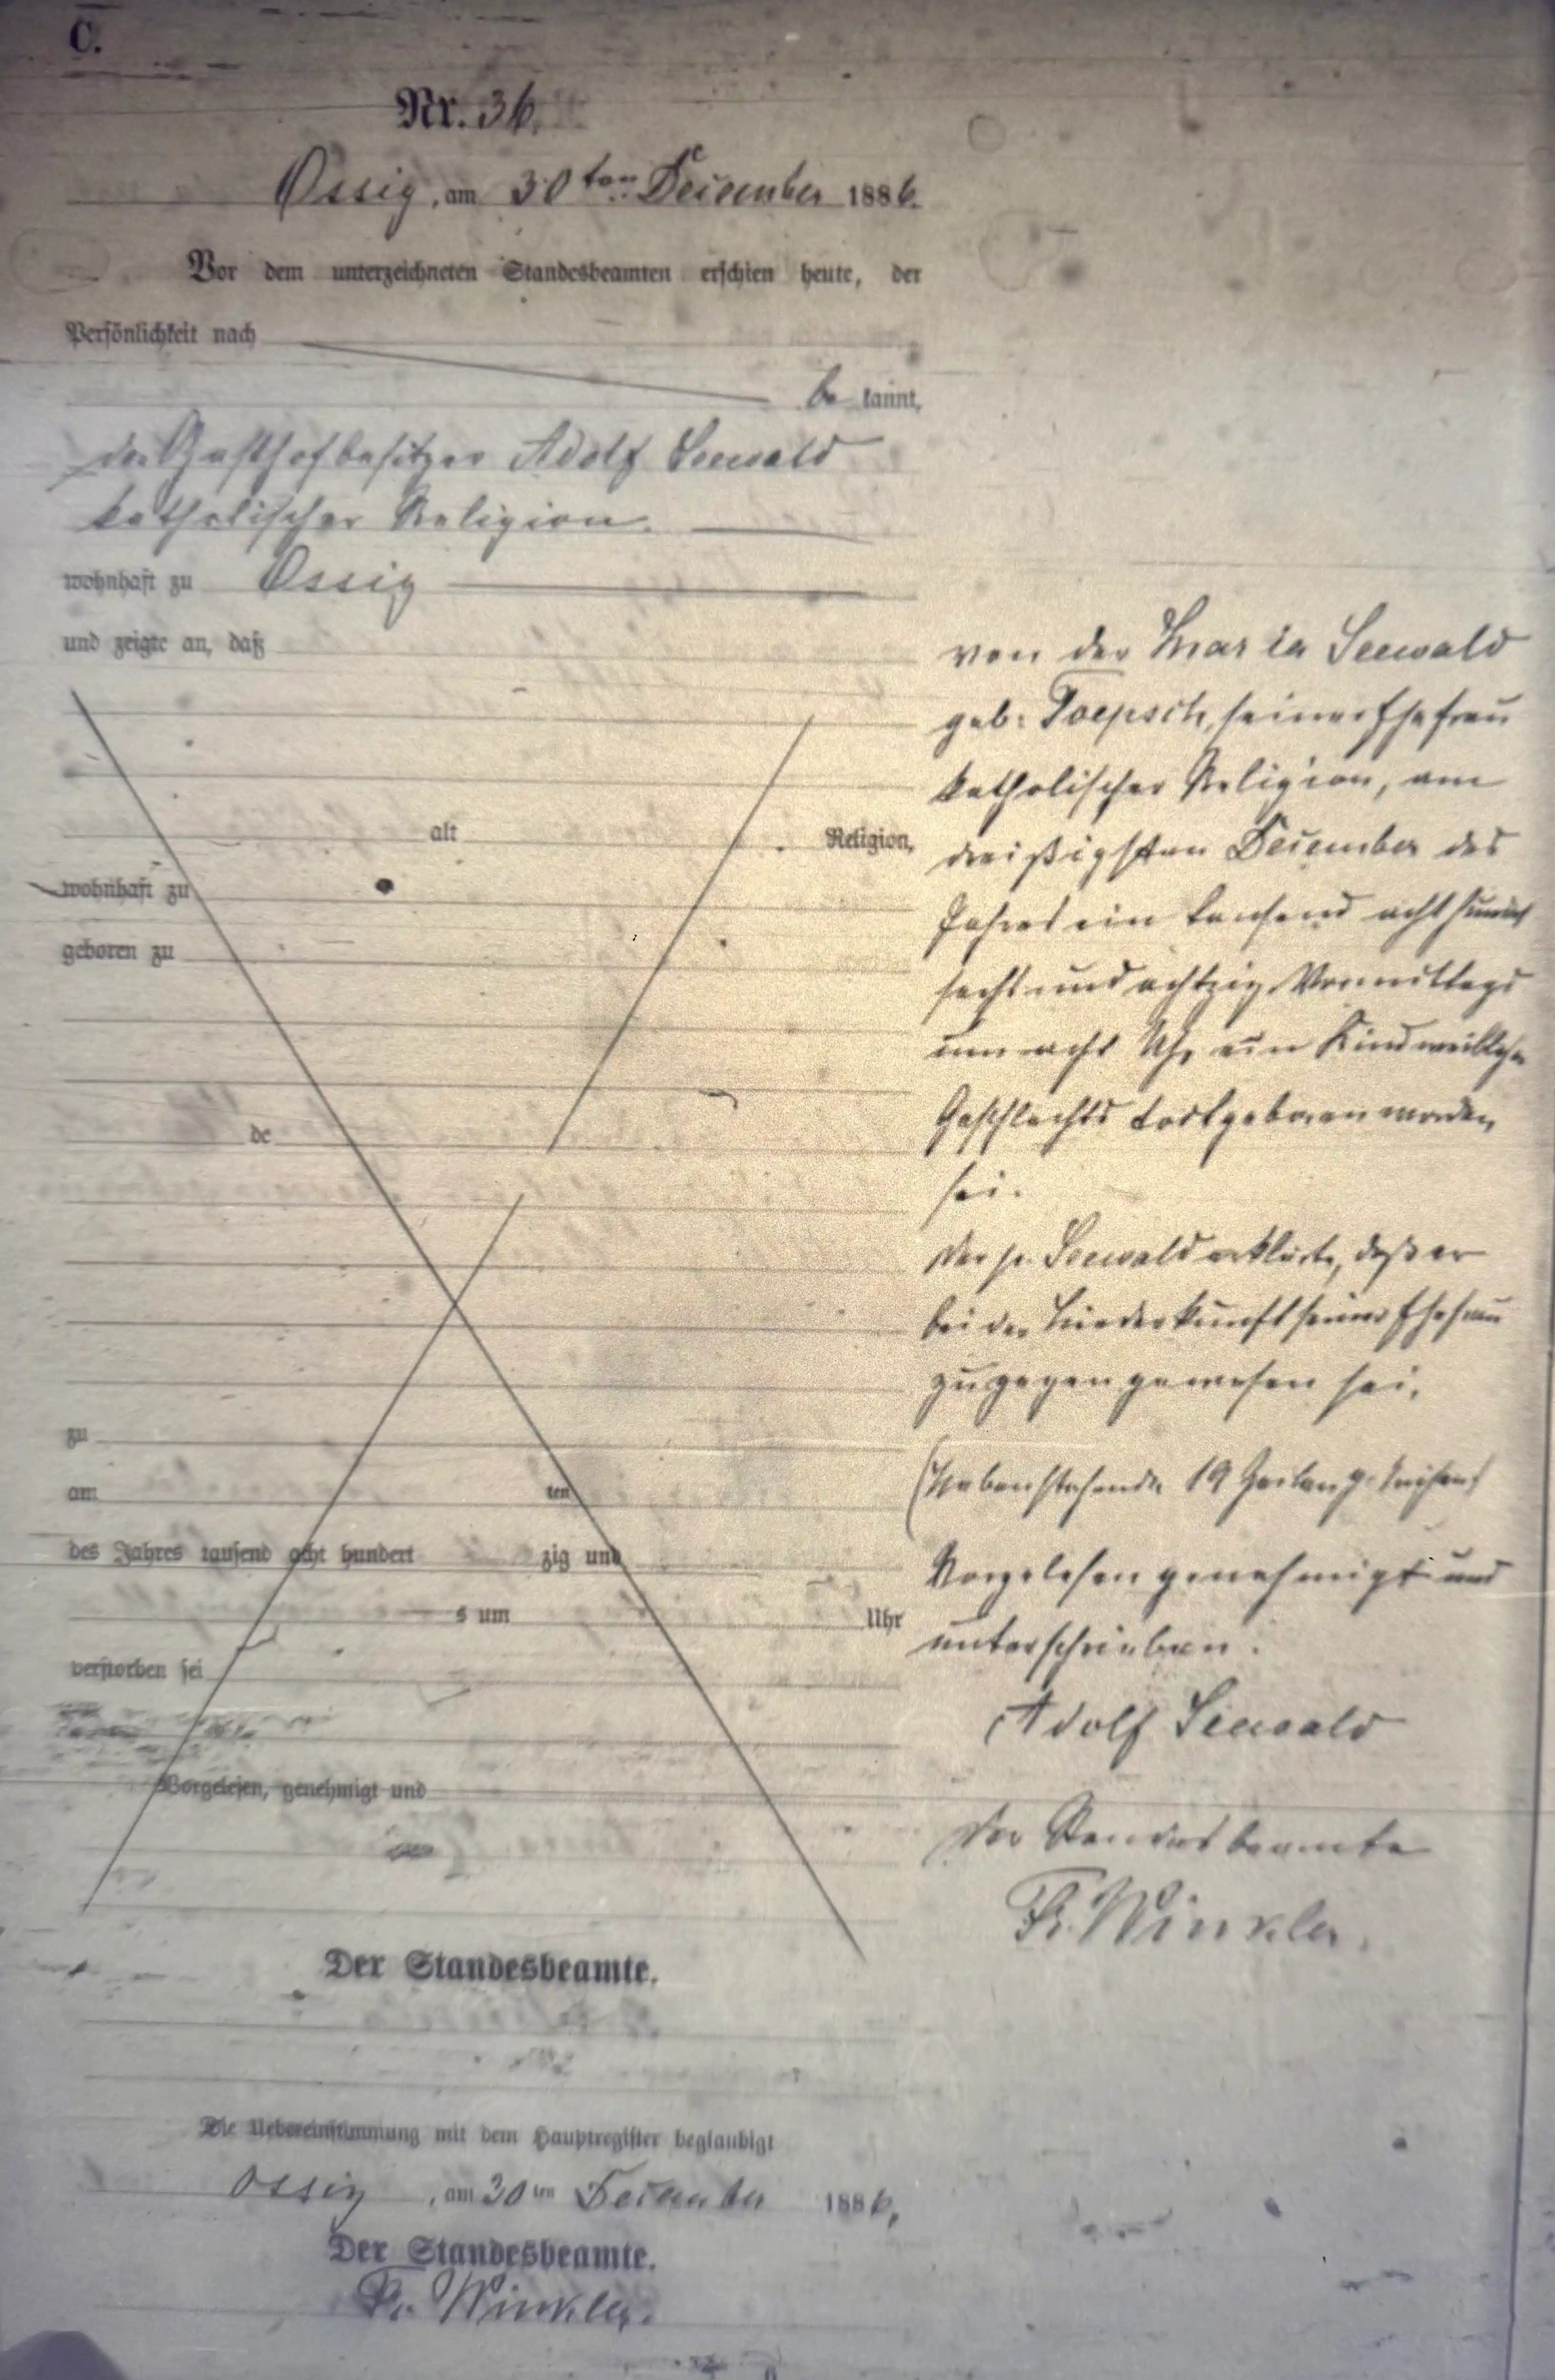 C.
Nr. 36.
Ossig, am 30ten December 1886.
Vor dem unterzeichneten Standesbeamten erschien heute, der
Persönlichkeit nach
be kannt,
der Gasthofbesitzer Adolf Seewald
katholischer Religion.
wohnhaft zu Ossig
und zeigte an, daß
von der Maria Seewald
geb: Toepsch, seiner Ehefrau
katholischer Religion, am
dreißigsten December des
Jahres ein tausend acht hundert
sechs und achtzig Vormittags
um acht Uhr ein Kind weiblichen
Geschlechts todtgeboren worden
sei.
Der p. Seewald erklärte, daß er
bei der Niederkunft seiner Ehefrau
zugegen gewesen sei.
(Nebenstehende 19 Zeilen gestrichen)
Vorgelesen genehmigt und
unterschrieben.
Adolf Seewald
Der Standesbeamte
Fr. Winkler.
alt Religion,
wohnhaft zu
geboren zu
de
zu
am ten
des Jahres tausend acht hundert zig und
s um Uhr
verstorben sei
Vorgelesen, genehmigt und
Der Standesbeamte.
Die Uebereinstimmung mit dem Hauptregister beglaubigt
Ossig, am 30ten December 1886,
Der Standesbeamte.
Fr. Winkler.